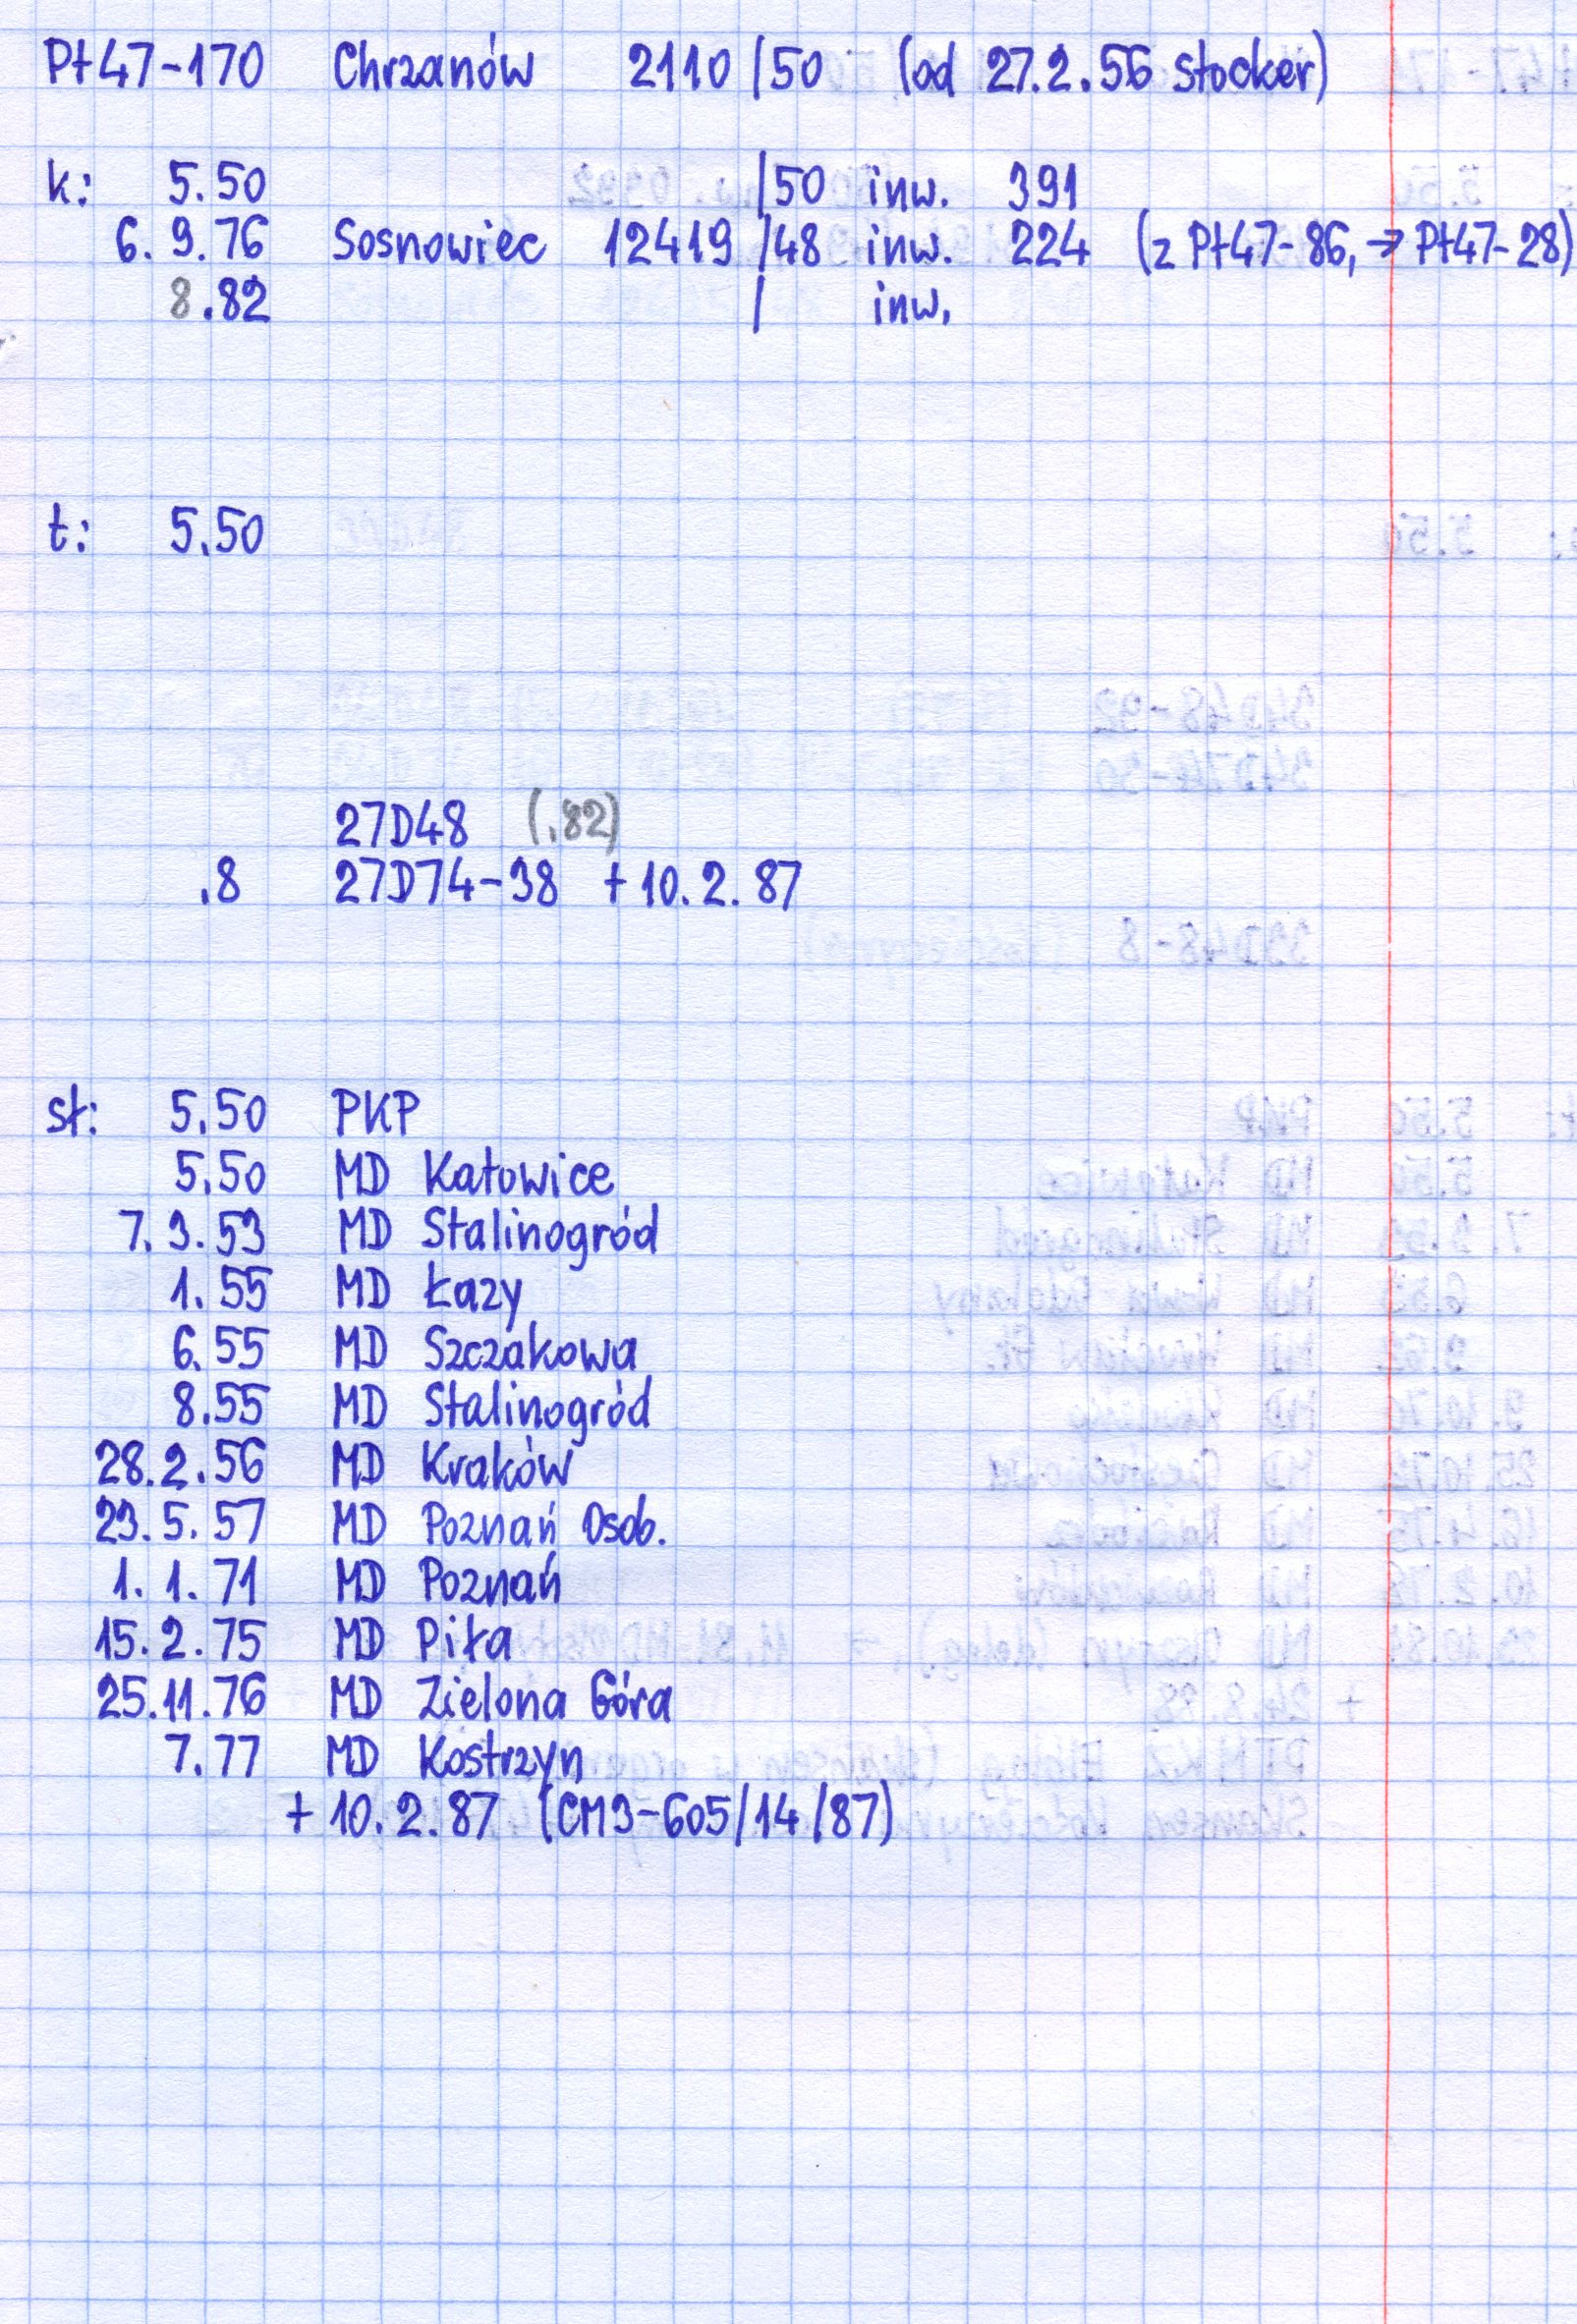 Pt47-170 Chrzanów 2110/50 (od 27.2.56 stocker)
k: 5.50 /50 inw. 391
6.9.76 Sosnowiec 12419/48 inw. 224 (z Pt47-86, → Pt47-28)
8.82 / inw.
t: 5.50
27D48 (.82)
.8 27D74-38 + 10.2.87
sł: 5.50 PKP
5.50 MD Katowice
7.3.53 MD Stalinogród
1.55 MD Łazy
6.55 MD Szczakowa
8.55 MD Stalinogród
28.2.56 MD Kraków
23.5.57 MD Poznań Osob.
1.1.71 MD Poznań
15.2.75 MD Piła
25.11.76 MD Zielona Góra
7.77 MD Kostrzyn
+ 10.2.87 (CM3-605/14/87)